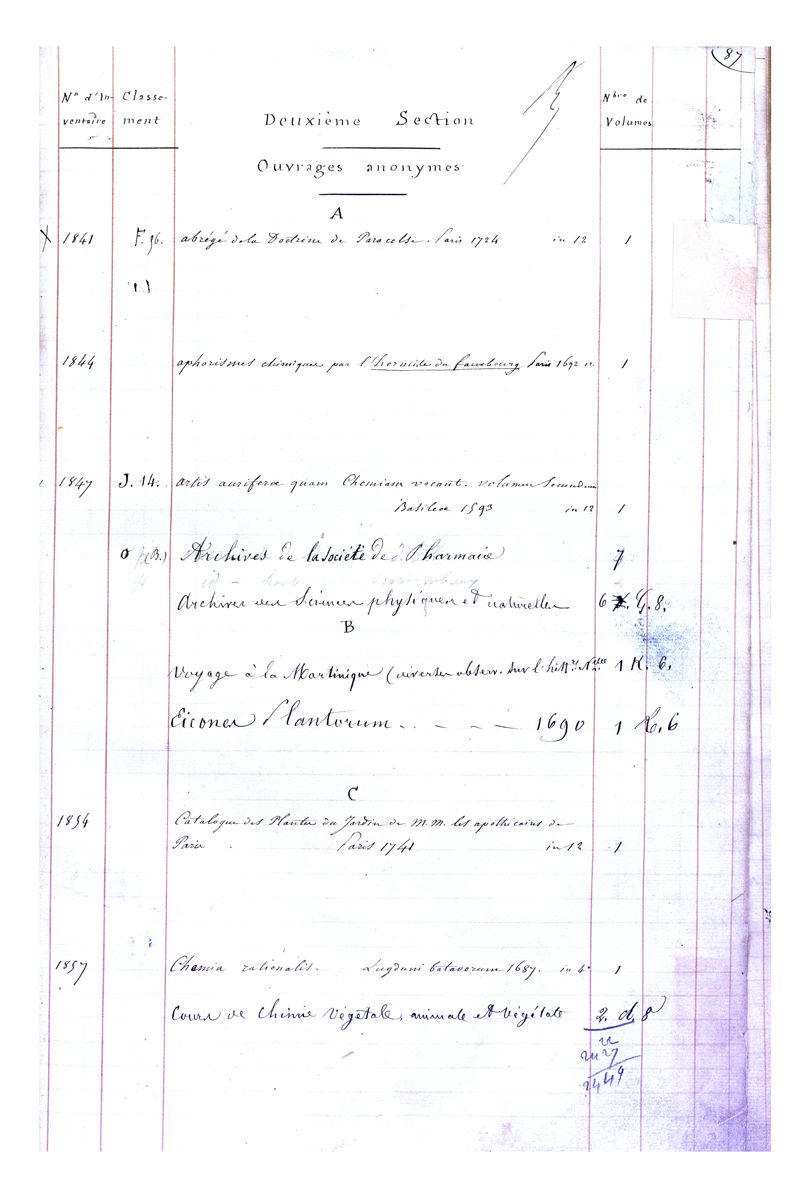 87
N° d'In- Classe- Nbre de
ventaire ment Deuxième Section Volumes
Ouvrages anonymes
A
1841 F. 96. abrégé de la Doctrine de Paracelse. Paris 1724 in 12 1
1844 aphorismes chimiques par l'hermite du fauxbourg Paris 1692 1
1847 J. 14. artis auriferæ quam Chemiam vocant. volumen secundum
Basileæ 1593 in 12 1
O (B.) Archives de la société de Pharmacie 7
Archives des Sciences physiques et naturelles 6 G. 8.
B
Voyage à la Martinique (diverses observ. sur l'hist. Nelle 1 K. 6.
Eicones Plantorum - - - - 1690 1 K. 6
C
1854 Catalogue des Plantes du Jardin de M.M. les apothicaires de
Paris. Paris 1741 in 12 1
1857 Chemia rationalis. Lugduni batavorum 1687. in 4° 1
Cours de Chimie végétale, animale et végétale 2. d. 8
22
2427
2449